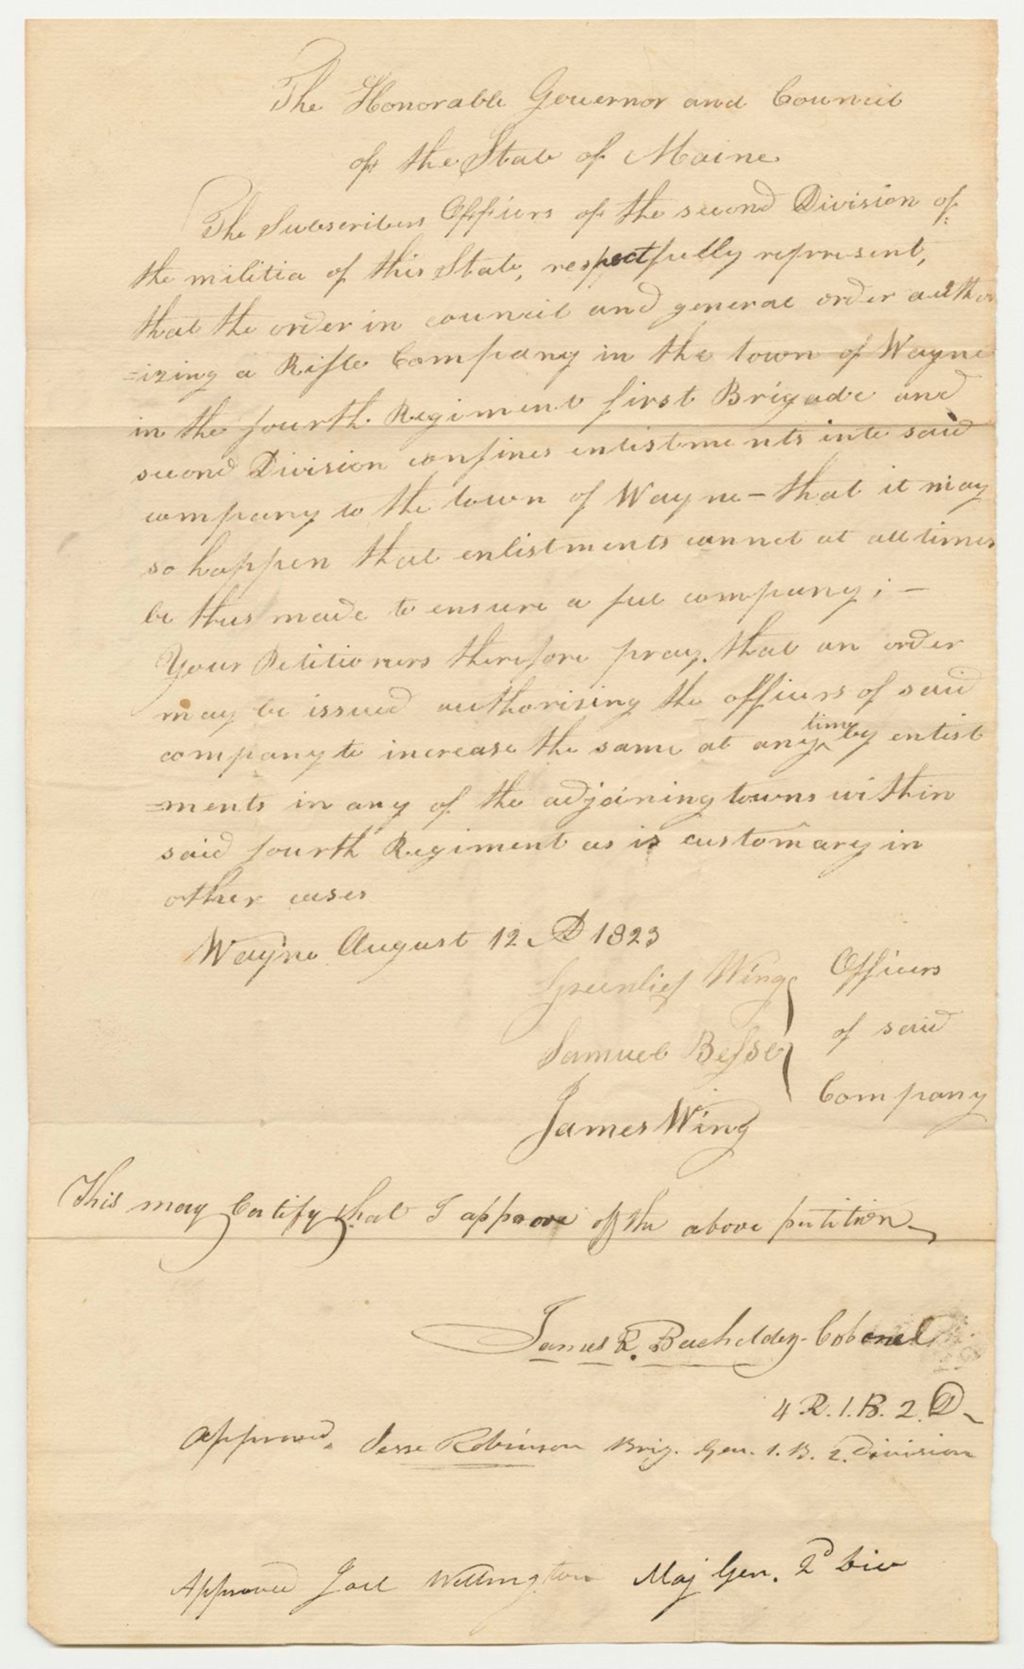 The Honorable Governor and Council
of the State of Maine
The Subscribers Officers of the second Division of
the militia of this State, respectfully represent,
that the order in council and general order author
=izing a Rifle Company in the town of Wayne
in the fourth Regiment first Brigade and
second Division confines enlistments into said
company to the town of Wayne — that it may
so happen that enlistments cannot at all times
be thus made to ensure a full company; —
Your Petitioners therefore pray, that an order
may be issued authorising the officers of said
company to increase the same at any time by enlist
=ments in any of the adjoining towns within
said fourth Regiment as is customary in
other cases
Wayne August 12 AD 1823
Greenlief Wing
Samuel Besse
James Wing
Officers
of said
Company
This may Certify that I approve of the above petition
James R. Bachelder Colonel
4 R. 1. B. 2. D
Approved. Jesse Robinson Brig. Gen. 1. B. 2. Division
Approved Joel Wellington Maj Gen. 2d Div